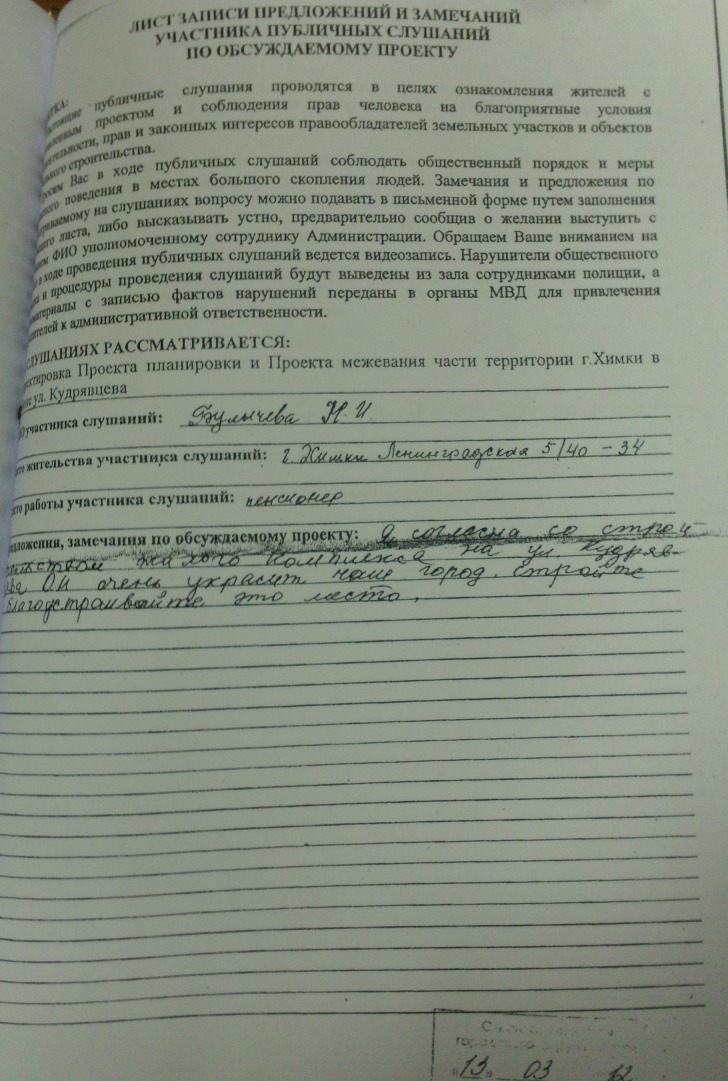 ЛИСТ ЗАПИСИ ПРЕДЛОЖЕНИЙ И ЗАМЕЧАНИЙ
УЧАСТНИКА ПУБЛИЧНЫХ СЛУШАНИЙ
ПО ОБСУЖДАЕМОМУ ПРОЕКТУ
публичные слушания проводятся в целях ознакомления жителей с
проектом и соблюдения прав человека на благоприятные условия
прав и законных интересов правообладателей земельных участков и объектов
строительства.
Вас в ходе публичных слушаний соблюдать общественный порядок и меры
поведения в местах большого скопления людей. Замечания и предложения по
на слушаниях вопросу можно подавать в письменной форме путем заполнения
листа, либо высказывать устно, предварительно сообщив о желании выступить с
ФИО уполномоченному сотруднику Администрации. Обращаем Ваше вниманием на
в ходе проведения публичных слушаний ведется видеозапись. Нарушители общественного
и процедуры проведения слушаний будут выведены из зала сотрудниками полиции, а
материалы с записью фактов нарушений переданы в органы МВД для привлечения
к административной ответственности.
СЛУШАНИЯХ РАССМАТРИВАЕТСЯ:
Проекта планировки и Проекта межевания части территории г.Химки в
ул. Кудрявцева
участника слушаний: Булычева Н.И
жительства участника слушаний: г. Химки Ленинградская 5/40 - 34
работы участника слушаний: пенсионер
замечания по обсуждаемому проекту: Я согласна со строи-
жилого комплекса на ул. Кудряв-
Он очень украсит наш город. Стройте
благоустраивайте это место.
"13" 03 12